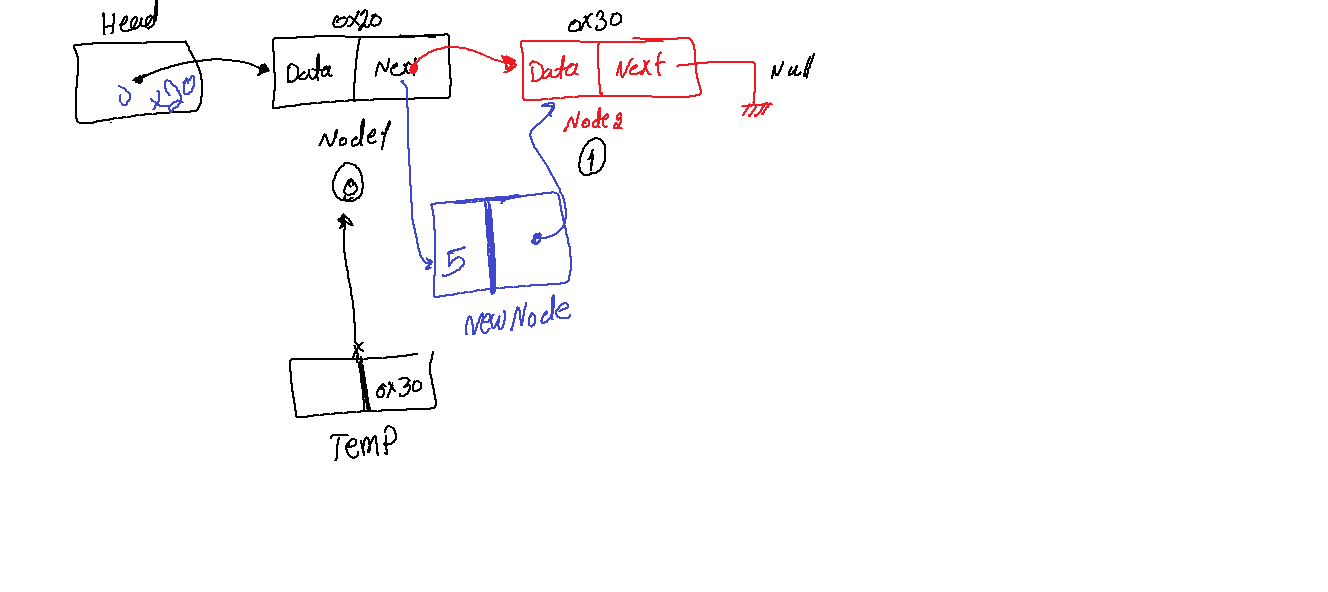 Head
0x20
0x30
0x20
Data
Next
Data
Next
Null
Node1
0
Node2
1
5
NewNode
0x30
TemP